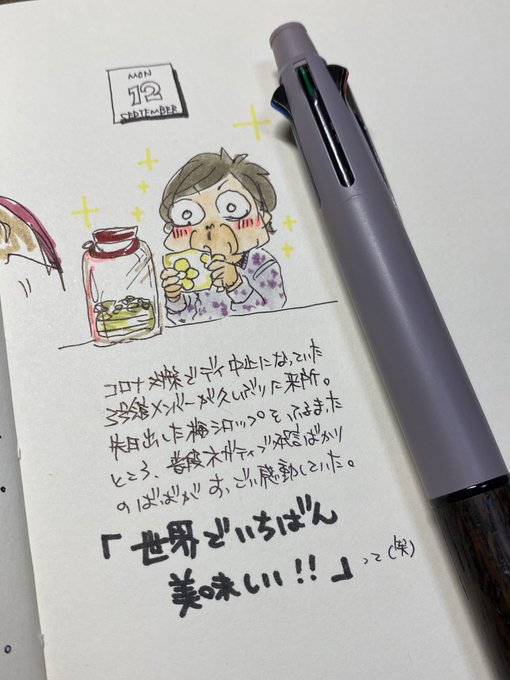 MON
12
SEPTEMBER
コロナ対策でデイ中止になっていた
3号館メンバーが久しぶりに来所。
昨日出した梅シロップをふるまった
ところ、普段ネガティブ発言ばかり
のばばがすごい感動していた。
「世界でいちばん
美味しい!!」って(笑)